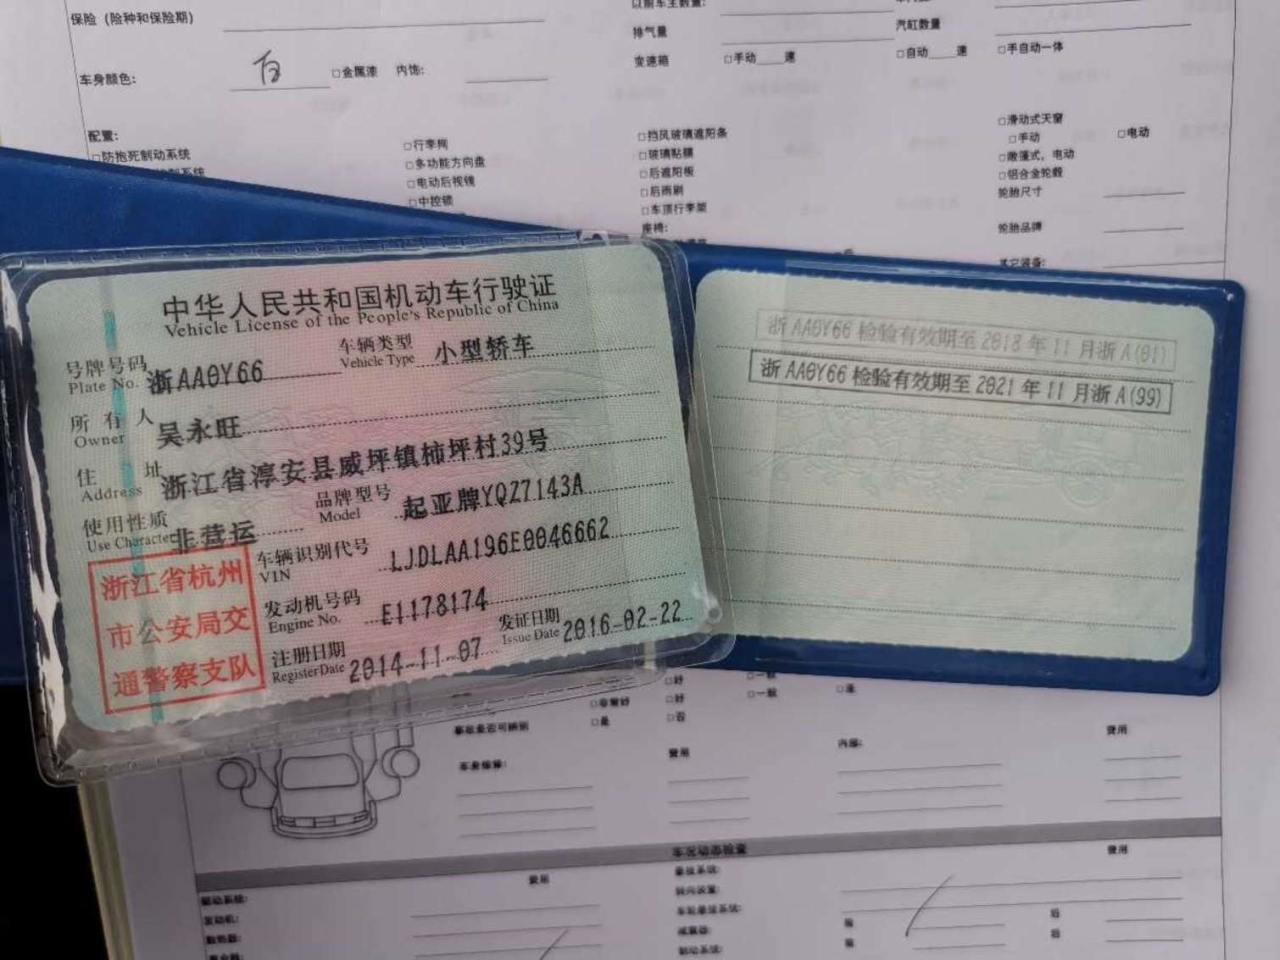 保险（险种和保险期）
以前车主数量:
排气量
汽缸数量
车身颜色: 白 □金属漆 内饰:
变速箱 □手动 速 □自动 速 □手自动一体
配置:
□防抱死制动系统
□行李网
□多功能方向盘
□电动后视镜
□中控锁
□挡风玻璃遮阳条
□玻璃贴膜
□后遮阳板
□后雨刷
□车顶行李架
座椅:
□滑动式天窗
□手动 □电动
□敞篷式，电动
□铝合金轮毂
轮胎尺寸
轮胎品牌
其它装备:
中华人民共和国机动车行驶证
Vehicle License of the People's Republic of China
号牌号码 浙AA0Y66 车辆类型 小型轿车
Plate No. Vehicle Type
所有人 吴永旺
Owner
住址 浙江省淳安县威坪镇柿坪村39号
Address
使用性质 非营运 品牌型号 起亚牌YQZ7143A
Use Character Model
车辆识别代号 LJDLAA196E0046662
VIN
发动机号码 E1178174
Engine No.
注册日期 2014-11-07 发证日期 2016-02-22
Register Date Issue Date
浙江省杭州
市公安局交
通警察支队
浙AA0Y66检验有效期至2018年11月浙A(01)
浙AA0Y66检验有效期至2021年11月浙A(99)
□非常好 □好 □一般 □差
□是 □否
车身维修:
费用
内部:
费用
车况动态检查
费用
费用
驱动系统:
发动机:
悬挂系统:
转向装置:
车轮悬挂系统:
减震器: 前 后
制动系统: 前 后